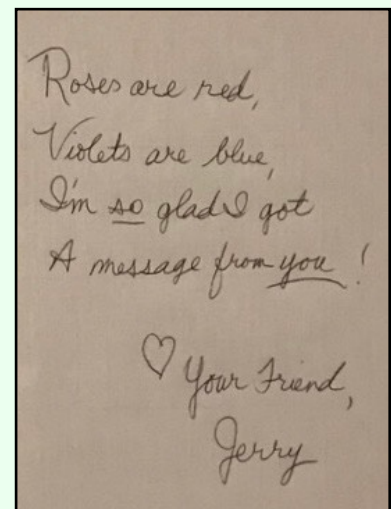 Roses are red,
Violets are blue,
I'm so glad I got
A message from you!
♡ Your Friend,
Jerry